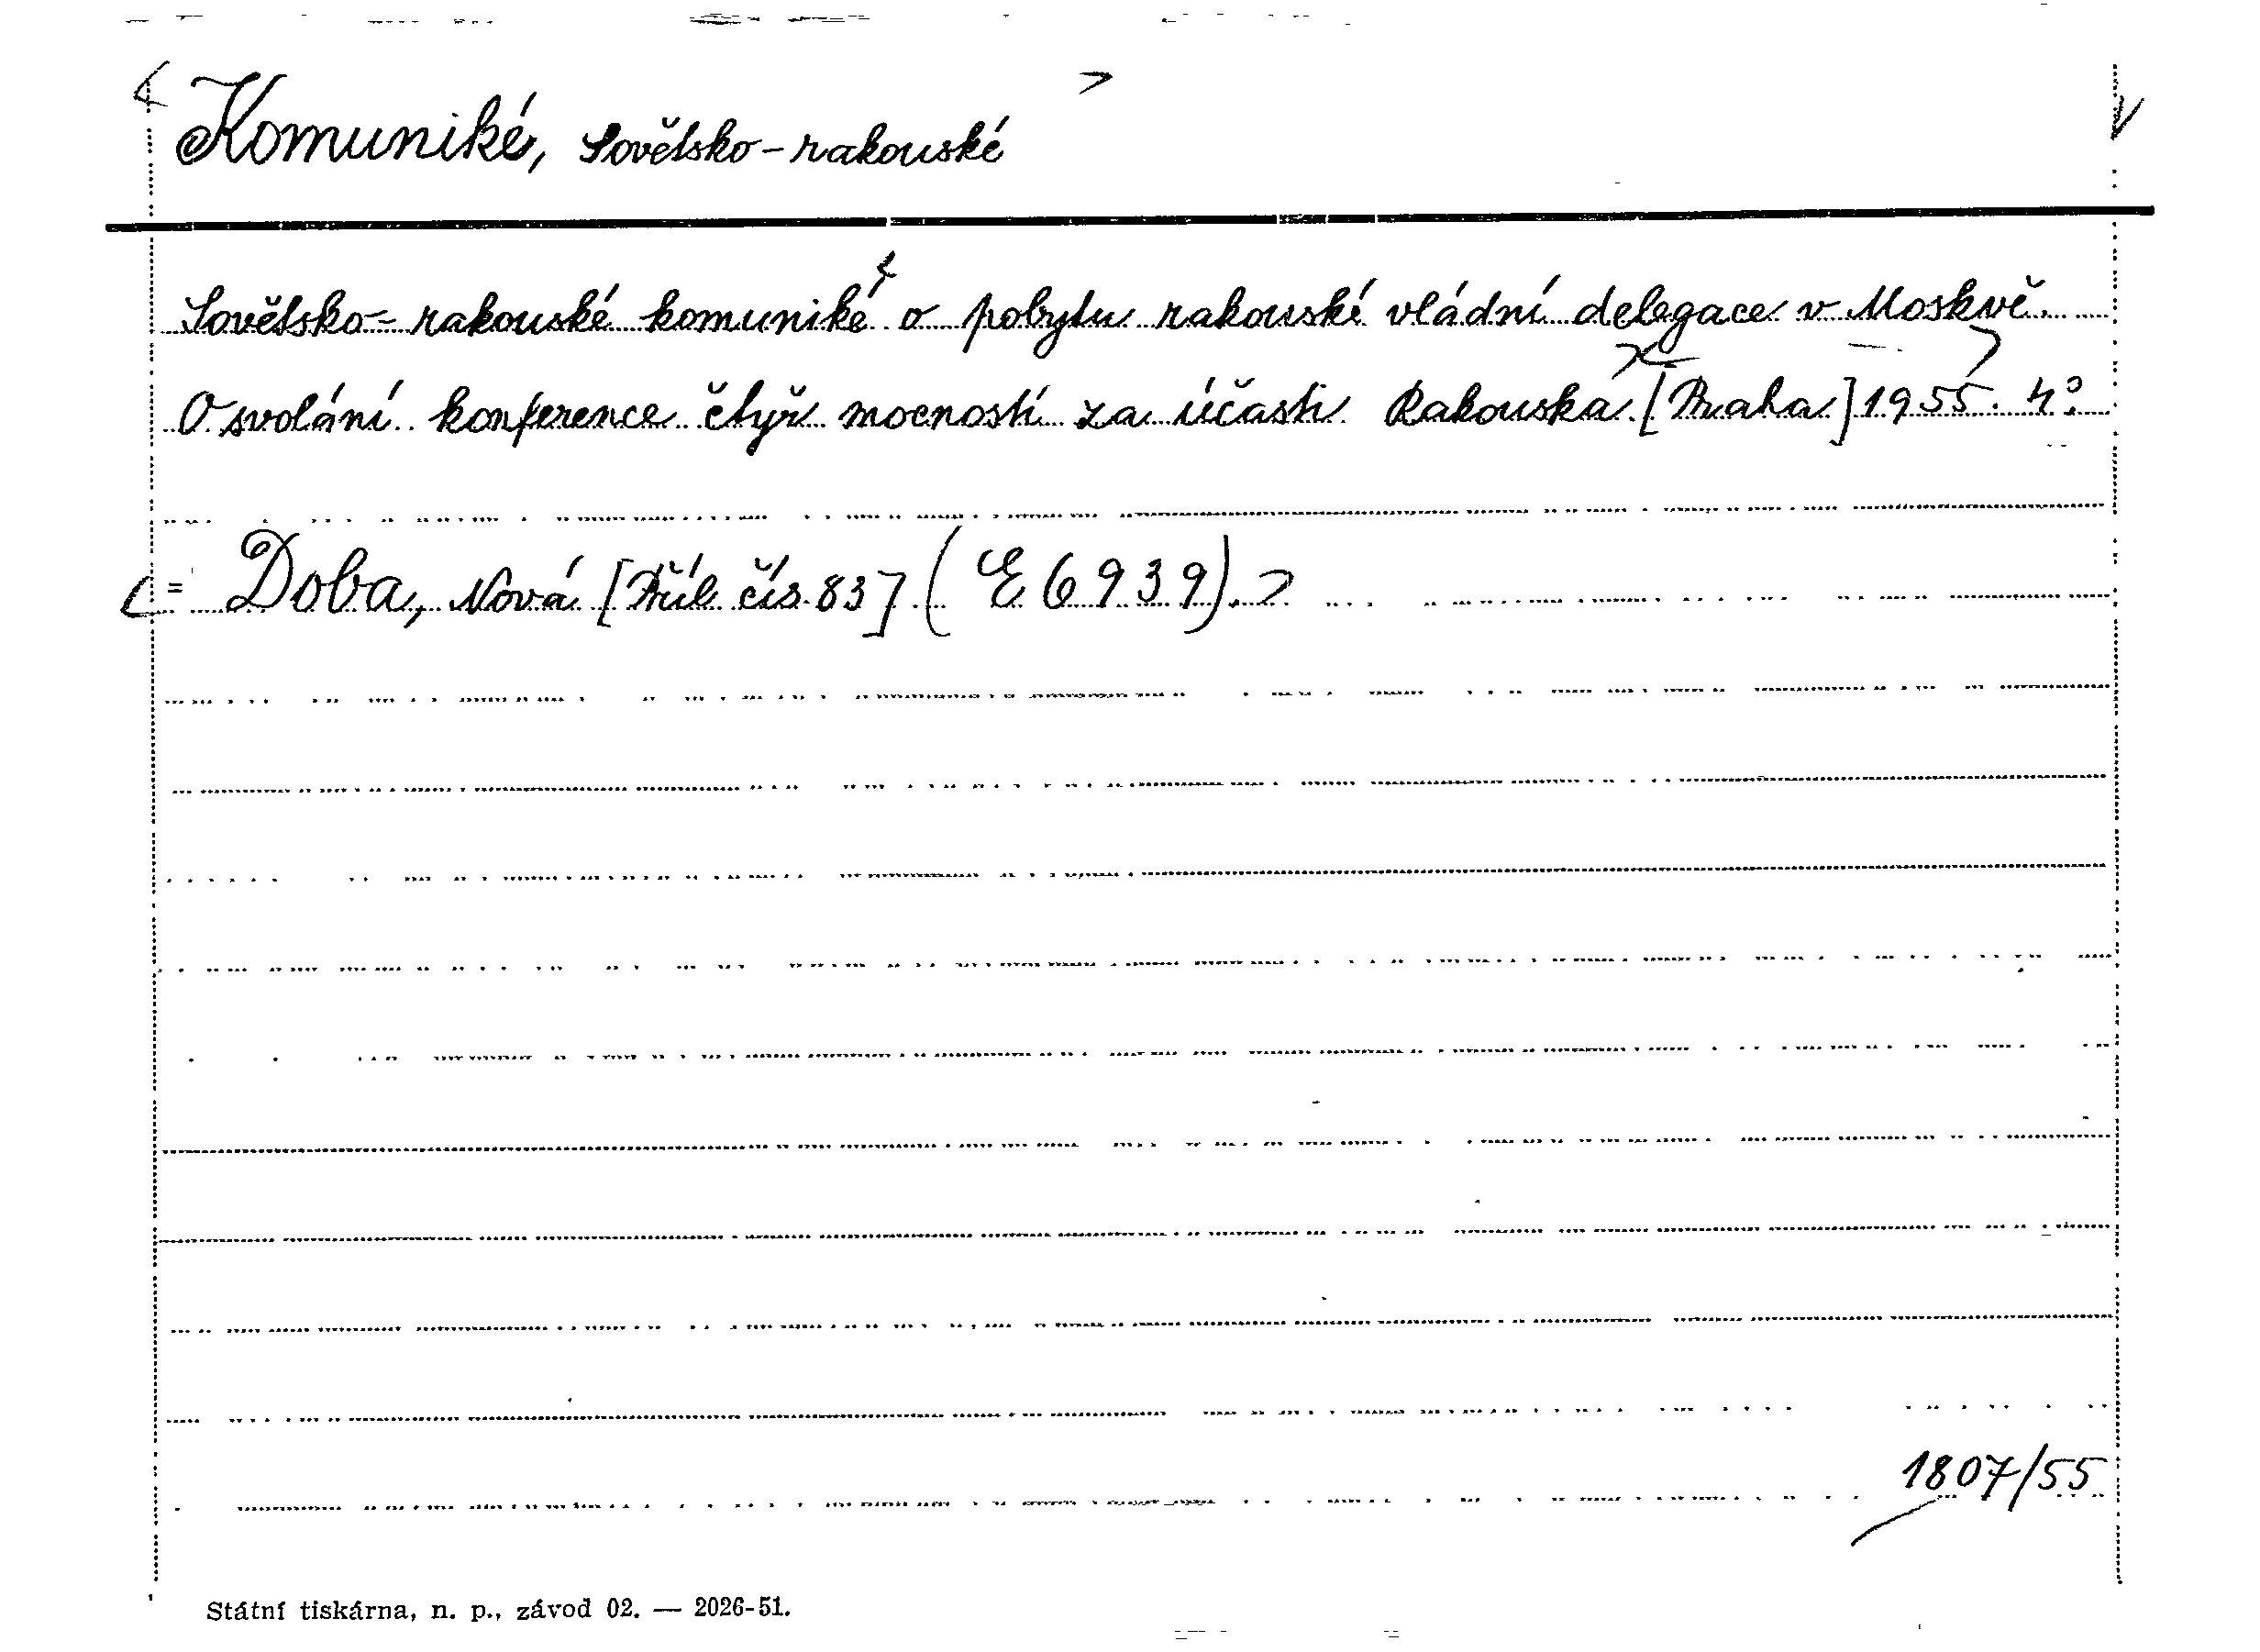 Komuniké, Sovětsko-rakouské
Sovětsko-rakouské komuniké o pobytu rakouské vládní delegace v Moskvě.
O svolání konference čtyř mocností za účasti Rakouska. [Praha] 1955. 4°.
= Doba, Nová [Příl. čís. 83] (E 6939).
1807/55
Státní tiskárna, n. p., závod 02. — 2026-51.